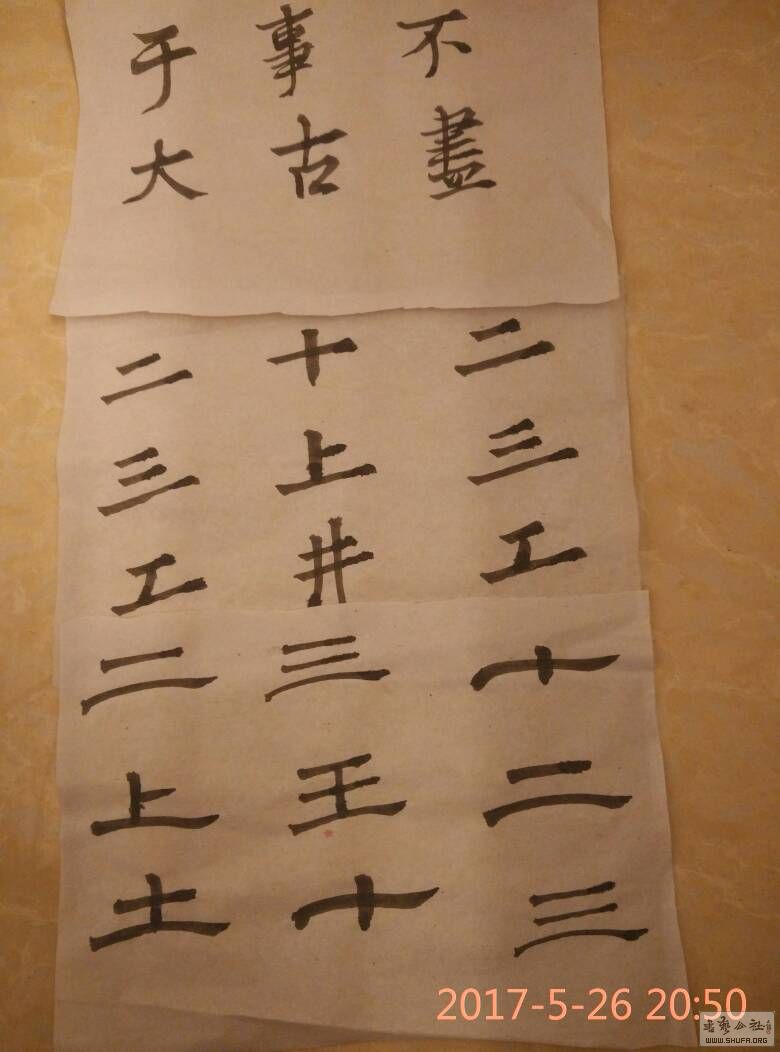 不盡
事古
于大
二三工
十上井
二三工
十二三
三王十
二上土
2017-5-26 20:50
書藝公社
WWW.SHUFA.ORG